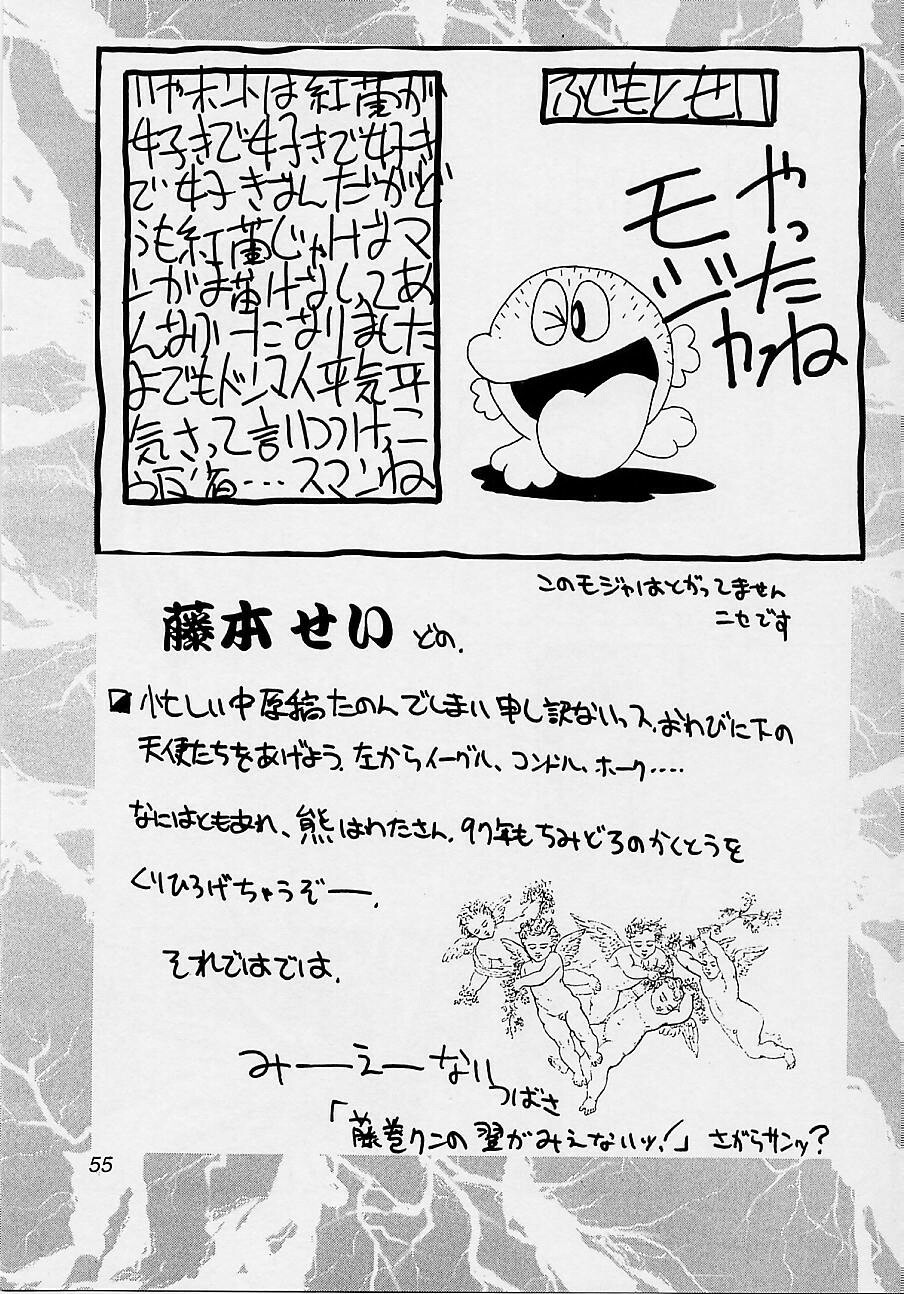 ふじもとせい
やったね
モジャ
いやホントは紅蘭が
好きで好きで好き
で好きなんだがど
うも紅蘭じゃけなマ
ンガは描けなくてあ
んなかーたになりました
よでもドンマイ平気平
気さって言いつつけっこ
う反省…スマンね
このモジャはとがってません
ニセです
藤本せい どの.
忙しい中原稿たのんでしまい申し訳ないっス.おわびに下の
天使たちをあげよう.左からイーグル、コンドル、ホーク‥‥
なにはともあれ、熊はわたさん.97年もちみどろのかくとうを
くりひろげちゃうぞ――.
それではでは.
みーえーない
つばさ
「藤巻クンの翼がみえないッ!」さがらサンッ?
55